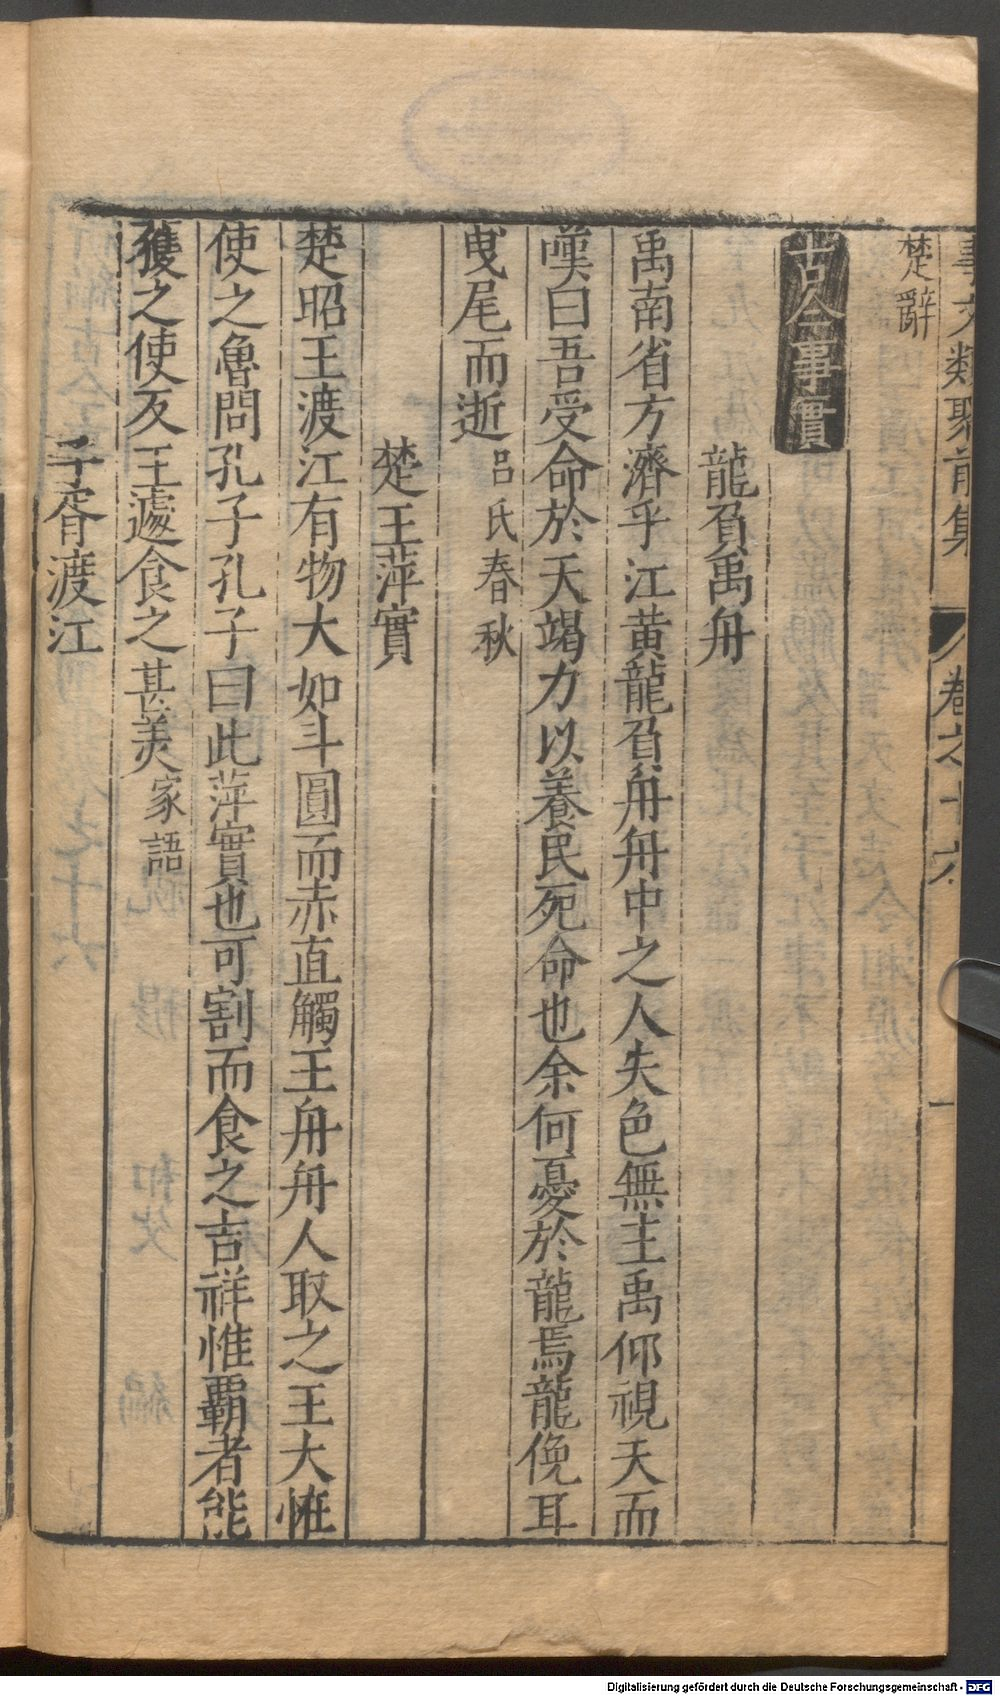 事文類聚前集 卷之十六 一
楚辭
古今事實
龍負禹舟
禹南省方濟乎江黄龍負舟舟中之人失色無主禹仰視天而
嘆曰吾受命於天竭力以養民死命也余何憂於龍焉龍俛耳
曵尾而逝吕氏春秋
楚王萍實
楚昭王渡江有物大如斗圓而赤直觸王舟舟人取之王大恠
使之魯問孔子孔子曰此萍實也可割而食之吉祥惟覇者能
獲之使反王遽食之甚美家語
子胥渡江
Digitalisierung gefördert durch die Deutsche Forschungsgemeinschaft - DFG